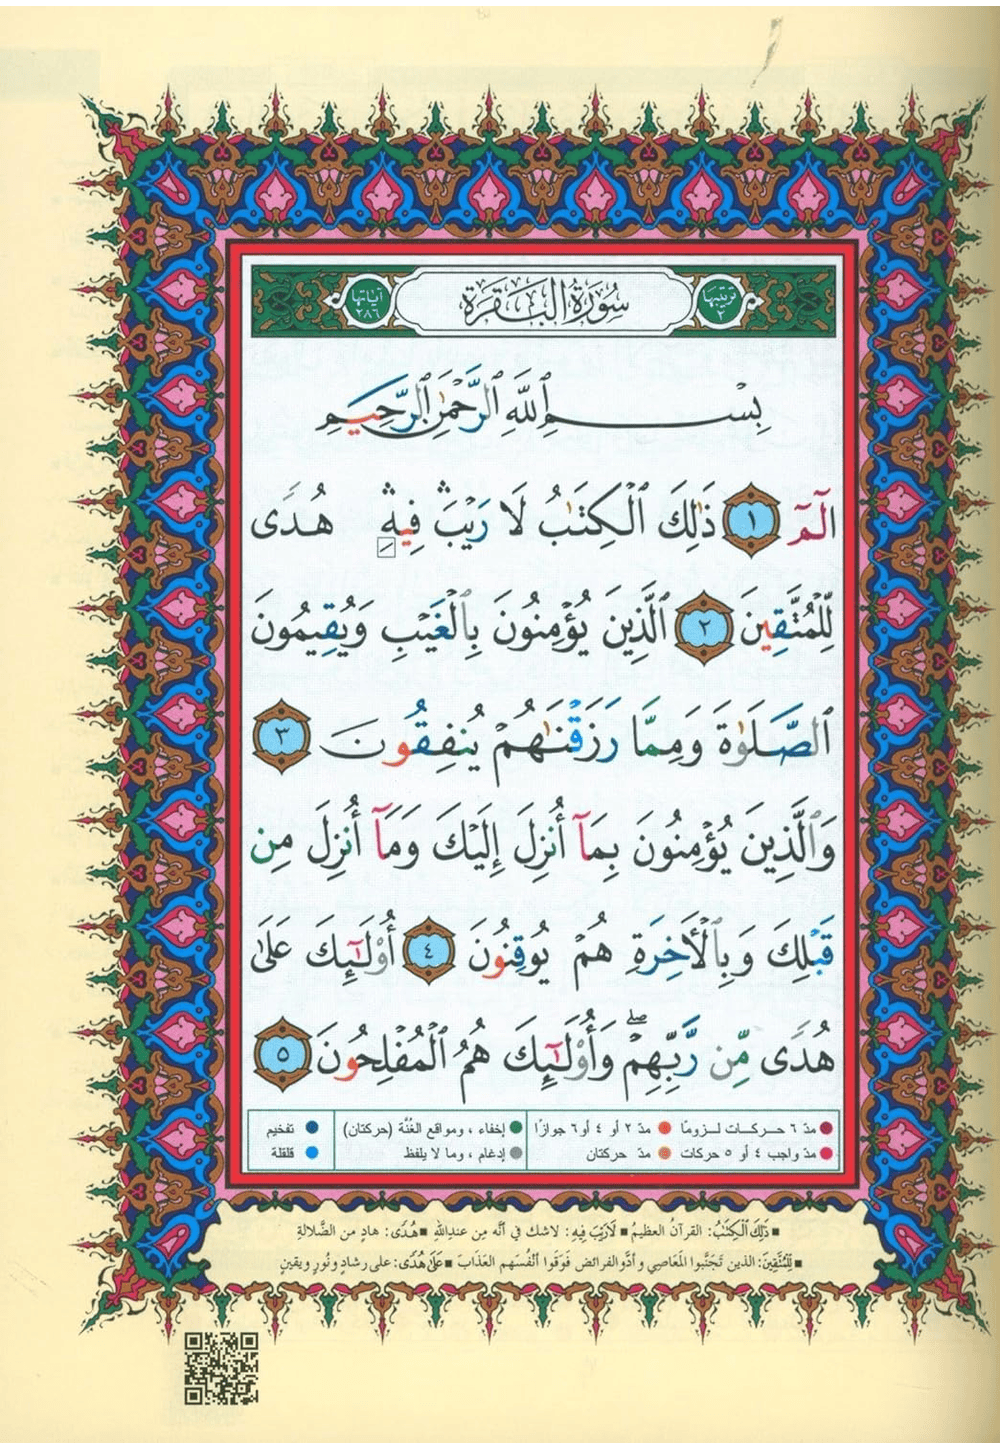 ترتيبها ٢ سُورَةُ البَقَرَةِ آياتها ٢٨٦
بِسْمِ ٱللَّهِ ٱلرَّحْمَٰنِ ٱلرَّحِيمِ
الٓمٓ ١ ذَٰلِكَ ٱلْكِتَٰبُ لَا رَيْبَ ۛ فِيهِ ۛ هُدًى
لِّلْمُتَّقِينَ ٢ ٱلَّذِينَ يُؤْمِنُونَ بِٱلْغَيْبِ وَيُقِيمُونَ
ٱلصَّلَوٰةَ وَمِمَّا رَزَقْنَٰهُمْ يُنفِقُونَ ٣
وَٱلَّذِينَ يُؤْمِنُونَ بِمَآ أُنزِلَ إِلَيْكَ وَمَآ أُنزِلَ مِن
قَبْلِكَ وَبِٱلْأَخِرَةِ هُمْ يُوقِنُونَ ٤ أُوْلَٰٓئِكَ عَلَىٰ
هُدًى مِّن رَّبِّهِمْ ۖ وَأُوْلَٰٓئِكَ هُمُ ٱلْمُفْلِحُونَ ٥
● مدّ ٦ حـركـات لـزومـًا ● مدّ ٢ أو ٤ أو ٦ جوازًا ● إخفاء ، ومواقع الغُنَّة (حركتان) ● تفخيم
● مدّ واجب ٤ أو ٥ حركات ● مدّ حركتان ● إدغام ، وما لا يلفظ ● قلقلة
■ ذَٰلِكَ ٱلْكِتَٰبُ: القرآنُ العظيمُ ■ لَا رَيْبَ فِيهِ: لاشك في أنَّه مِن عندِاللهِ ■ هُدًى: هادٍ من الضَّلالةِ
■ لِلْمُتَّقِينَ: الذين تَجَنَّبوا المَعَاصِي و أدَّوالفرائضَ فَوَقَوا أنْفُسَهم العَذَابَ ■ عَلَىٰ هُدًى: على رشادٍ ونُورٍ ويقينٍ